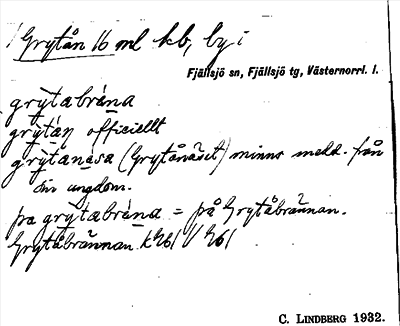 Grytån 16 ml kb, by i
Fjällsjö sn, Fjällsjö tg, Västernorrl. l.
grỳtabrána
grỳtáṇ officiellt
grỳtanäsa (Grytånäset) minns medd. från
sin ungdom.
pa grỳtabrána = på Grytåbrännan.
Grytåbrännan
C. LINDBERG 1932.